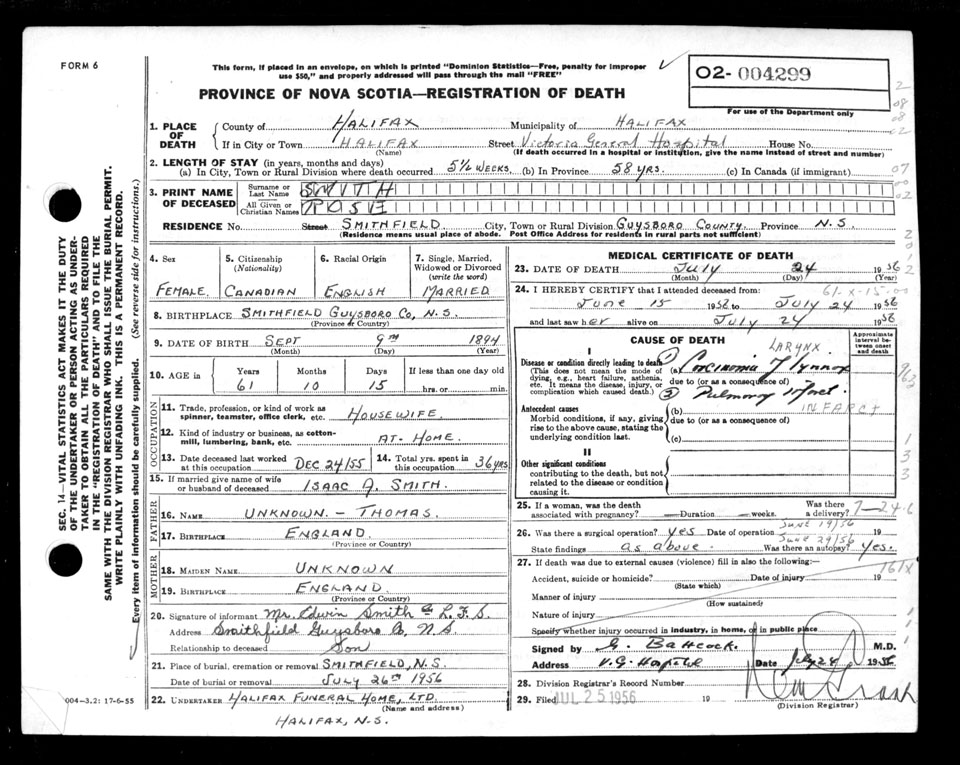 FORM 6
This form, if placed in an envelope, on which is printed "Dominion Statistics—Free, penalty for improper
use $50," and properly addressed will pass through the mail "FREE"
O2-004299
For use of the Department only
PROVINCE OF NOVA SCOTIA—REGISTRATION OF DEATH
1. PLACE OF DEATH
County of HALIFAX Municipality of HALIFAX
If in City or Town HALIFAX Street Victoria General Hospital House No.
(Name) (If death occurred in a hospital or institution, give the name instead of street and number)
2. LENGTH OF STAY (in years, months and days)
(a) In City, Town or Rural Division where death occurred 5½ WEEKS. (b) In Province 58 YRS. (c) In Canada (if immigrant)
3. PRINT NAME OF DECEASED
Surname or Last Name SMITH
All Given or Christian Names ROSE
RESIDENCE No. Street SMITHFIELD City, Town or Rural Division GUYSBORO COUNTY. Province N.S.
(Residence means usual place of abode. Post Office Address for residents in rural parts not sufficient)
4. Sex
FEMALE
5. Citizenship
(Nationality)
CANADIAN
6. Racial Origin
ENGLISH
7. Single, Married,
Widowed or Divorced
(write the word)
MARRIED
8. BIRTHPLACE SMITHFIELD GUYSBORO CO, N.S.
(Province or Country)
9. DATE OF BIRTH SEPT 9TH 1894
(Month) (Day) (Year)
10. AGE
Years Months Days If less than one day old
61 10 15 hrs. or min.
OCCUPATION
11. Trade, profession, or kind of work as
spinner, teamster, office clerk, etc. HOUSEWIFE.
12. Kind of industry or business, as cotton-
mill, lumbering, bank, etc. AT-HOME.
13. Date deceased last worked
at this occupation DEC 24/55
14. Total yrs. spent in
this occupation 36 YRS
15. If married give name of wife
or husband of deceased ISAAC A. SMITH.
FATHER
16. NAME UNKNOWN. - THOMAS.
17. BIRTHPLACE ENGLAND.
(Province or Country)
MOTHER
18. MAIDEN NAME UNKNOWN
19. BIRTHPLACE ENGLAND.
(Province or Country)
20. Signature of informant Mr. Edwin Smith L.F.S.
Address Smithfield Guysboro Co, N.S.
Relationship to deceased Son
21. Place of burial, cremation or removal SMITHFIELD, N.S.
Date of burial or removal JULY 26TH 1956
22. UNDERTAKER HALIFAX FUNERAL HOME, LTD.
(Name and address)
HALIFAX, N.S.
004—3.2: 17-6-55
SEC. 14—VITAL STATISTICS ACT MAKES IT THE DUTY
OF THE UNDERTAKER OR PERSON ACTING AS UNDER-
TAKER TO OBTAIN ALL THE PARTICULARS REQUIRED
IN THE "REGISTRATION OF DEATH" AND TO FILE THE
SAME WITH THE DIVISION REGISTRAR WHO SHALL ISSUE THE BURIAL PERMIT.
WRITE PLAINLY WITH UNFADING INK. THIS IS A PERMANENT RECORD.
Every item of information should be carefully supplied. (See reverse side for instructions.)
MEDICAL CERTIFICATE OF DEATH
23. DATE OF DEATH July 24 1956
(Month) (Day) (Year)
24. I HEREBY CERTIFY that I attended deceased from: 61-X-15-00
June 15 1956 to July 24 1956
and last saw her alive on July 24 1956
CAUSE OF DEATH
Approximate interval between onset and death
I
Disease or condition directly leading to death
(This does not mean the mode of dying, e.g., heart failure, asthenia, etc. It means the disease, injury, or complication which caused death.)
LARYNX
(a) ① Carcinoma of larynx
due to (or as a consequence of)
② Pulmonary Infarct
INFARCT
Antecedent causes
Morbid conditions, if any, giving rise to the above cause, stating the underlying condition last.
(b)
due to (or as a consequence of)
(c)
II
Other significant conditions
contributing to the death, but not related to the disease or condition causing it.
25. If a woman, was the death
associated with pregnancy? — Duration — weeks. Was there a delivery? 7-24-6
June 19/56
26. Was there a surgical operation? yes Date of operation June 29/56 19
State findings as above. Was there an autopsy? Yes.
27. If death was due to external causes (violence) fill in also the following:— 161X
Accident, suicide or homicide? Date of injury 19
(State which)
Manner of injury
(How sustained)
Nature of injury
Specify whether injury occurred in industry, in home, or in public place
Signed by G. Battcock. M.D.
Address V.G. Hospital Date July 24 1956
28. Division Registrar's Record Number
29. Filed JUL 25 1956 19
(Division Registrar)